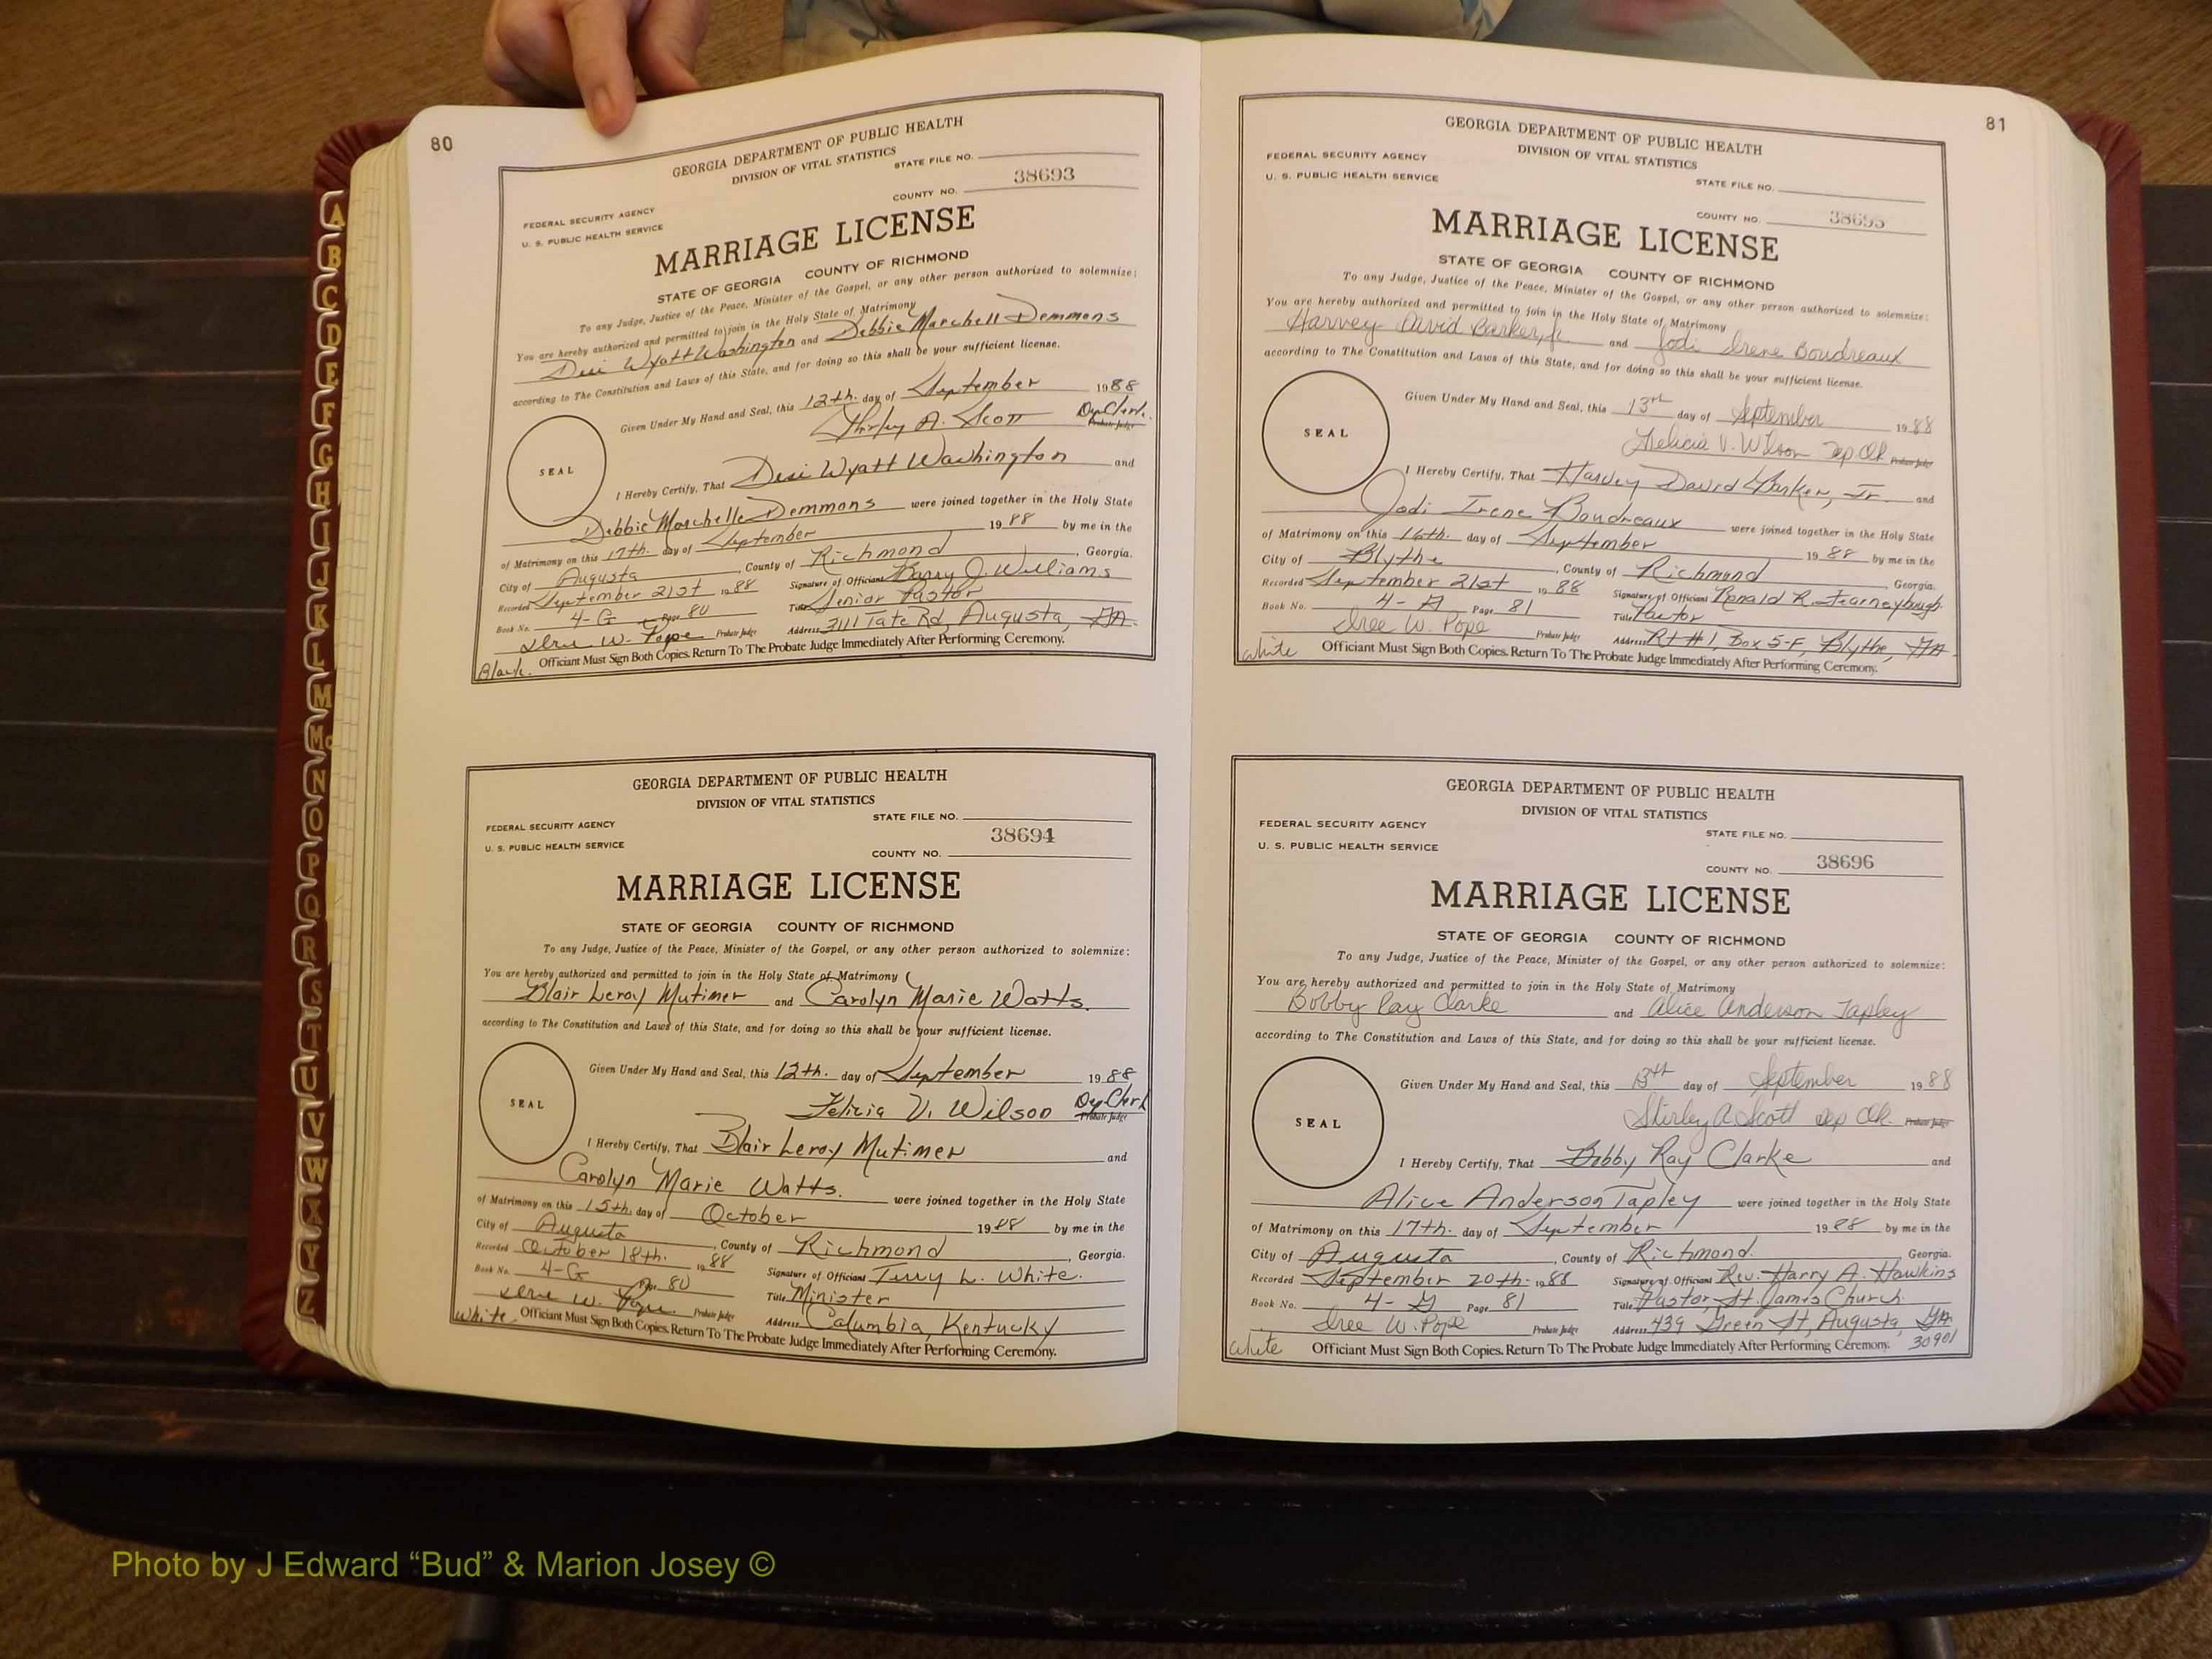 80
GEORGIA DEPARTMENT OF PUBLIC HEALTH
DIVISION OF VITAL STATISTICS
STATE FILE NO.
COUNTY NO. 38693
FEDERAL SECURITY AGENCY
U. S. PUBLIC HEALTH SERVICE
MARRIAGE LICENSE
STATE OF GEORGIA COUNTY OF RICHMOND
To any Judge, Justice of the Peace, Minister of the Gospel, or any other person authorized to solemnize:
You are hereby authorized and permitted to join in the Holy State of Matrimony
Desi Wyatt Washington and Debbie Marchell Demmons
according to The Constitution and Laws of this State, and for doing so this shall be your sufficient license.
Given Under My Hand and Seal, this 12th. day of September 1988
Shirley A. Scott Dep Clerk. Probate Judge
SEAL
I Hereby Certify, That Desi Wyatt Washington and
Debbie Marchelle Demmons were joined together in the Holy State
of Matrimony on this 17th. day of September 1988 by me in the
City of Augusta, County of Richmond, Georgia.
Recorded September 21st 1988 Signature of Officiant Barry J. Williams
Book No. 4-G Page 80 Title Senior Pastor
Iree W. Pope Probate Judge Address 3111 Tate Rd, Augusta, GA.
Black. Officiant Must Sign Both Copies. Return To The Probate Judge Immediately After Performing Ceremony.
GEORGIA DEPARTMENT OF PUBLIC HEALTH
DIVISION OF VITAL STATISTICS
STATE FILE NO.
FEDERAL SECURITY AGENCY
U. S. PUBLIC HEALTH SERVICE
COUNTY NO. 38694
MARRIAGE LICENSE
STATE OF GEORGIA COUNTY OF RICHMOND
To any Judge, Justice of the Peace, Minister of the Gospel, or any other person authorized to solemnize:
You are hereby authorized and permitted to join in the Holy State of Matrimony
Blair Leroy Mutimer and Carolyn Marie Watts.
according to The Constitution and Laws of this State, and for doing so this shall be your sufficient license.
Given Under My Hand and Seal, this 12th. day of September 1988
Felicia V. Wilson Dep Clerk Probate Judge
SEAL
I Hereby Certify, That Blair Leroy Mutimer and
Carolyn Marie Watts. were joined together in the Holy State
of Matrimony on this 15th. day of October 1988 by me in the
City of Augusta, County of Richmond, Georgia.
Recorded October 18th. 1988 Signature of Officiant Terry L. White.
Book No. 4-G Page 80 Title Minister
Iree W. Pope Probate Judge Address Columbia, Kentucky
White Officiant Must Sign Both Copies. Return To The Probate Judge Immediately After Performing Ceremony.
81
GEORGIA DEPARTMENT OF PUBLIC HEALTH
DIVISION OF VITAL STATISTICS
FEDERAL SECURITY AGENCY
U. S. PUBLIC HEALTH SERVICE
STATE FILE NO.
COUNTY NO. 38695
MARRIAGE LICENSE
STATE OF GEORGIA COUNTY OF RICHMOND
To any Judge, Justice of the Peace, Minister of the Gospel, or any other person authorized to solemnize:
You are hereby authorized and permitted to join in the Holy State of Matrimony
Harvey David Barker, Jr. and Jodi Irene Boudreaux
according to The Constitution and Laws of this State, and for doing so this shall be your sufficient license.
Given Under My Hand and Seal, this 13th day of September 1988
Felicia V. Wilson Dep Clk Probate Judge
SEAL
I Hereby Certify, That Harvey David Barker, Jr. and
Jodi Irene Boudreaux were joined together in the Holy State
of Matrimony on this 16th. day of September 1988 by me in the
City of Blythe, County of Richmond, Georgia.
Recorded September 21st 1988 Signature of Officiant Ronald R. Fearneyhough
Book No. 4-G Page 81 Title Pastor
Iree W. Pope Probate Judge Address Rt #1, Box 5-F, Blythe, GA.
White Officiant Must Sign Both Copies. Return To The Probate Judge Immediately After Performing Ceremony.
GEORGIA DEPARTMENT OF PUBLIC HEALTH
DIVISION OF VITAL STATISTICS
FEDERAL SECURITY AGENCY
STATE FILE NO.
U. S. PUBLIC HEALTH SERVICE
COUNTY NO. 38696
MARRIAGE LICENSE
STATE OF GEORGIA COUNTY OF RICHMOND
To any Judge, Justice of the Peace, Minister of the Gospel, or any other person authorized to solemnize:
You are hereby authorized and permitted to join in the Holy State of Matrimony
Bobby Ray Clarke and Alice Anderson Tapley
according to The Constitution and Laws of this State, and for doing so this shall be your sufficient license.
Given Under My Hand and Seal, this 13th day of September 1988
Shirley A Scott Dep Clk. Probate Judge
SEAL
I Hereby Certify, That Bobby Ray Clarke and
Alice Anderson Tapley were joined together in the Holy State
of Matrimony on this 17th. day of September 1988 by me in the
City of Augusta, County of Richmond. Georgia.
Recorded September 20th. 1988 Signature of Officiant Rev. Harry A. Hawkins
Book No. 4-G Page 81 Title Pastor, St. James Church.
Iree W. Pope Probate Judge Address 439 Green St, Augusta, GA
White Officiant Must Sign Both Copies. Return To The Probate Judge Immediately After Performing Ceremony. 30901
A
B
C
D
E
F
G
H
I
J
K
L
M
Mc
N
O
P
Q
R
S
T
U
V
W
X
Y
Z
Photo by J Edward “Bud” & Marion Josey ©